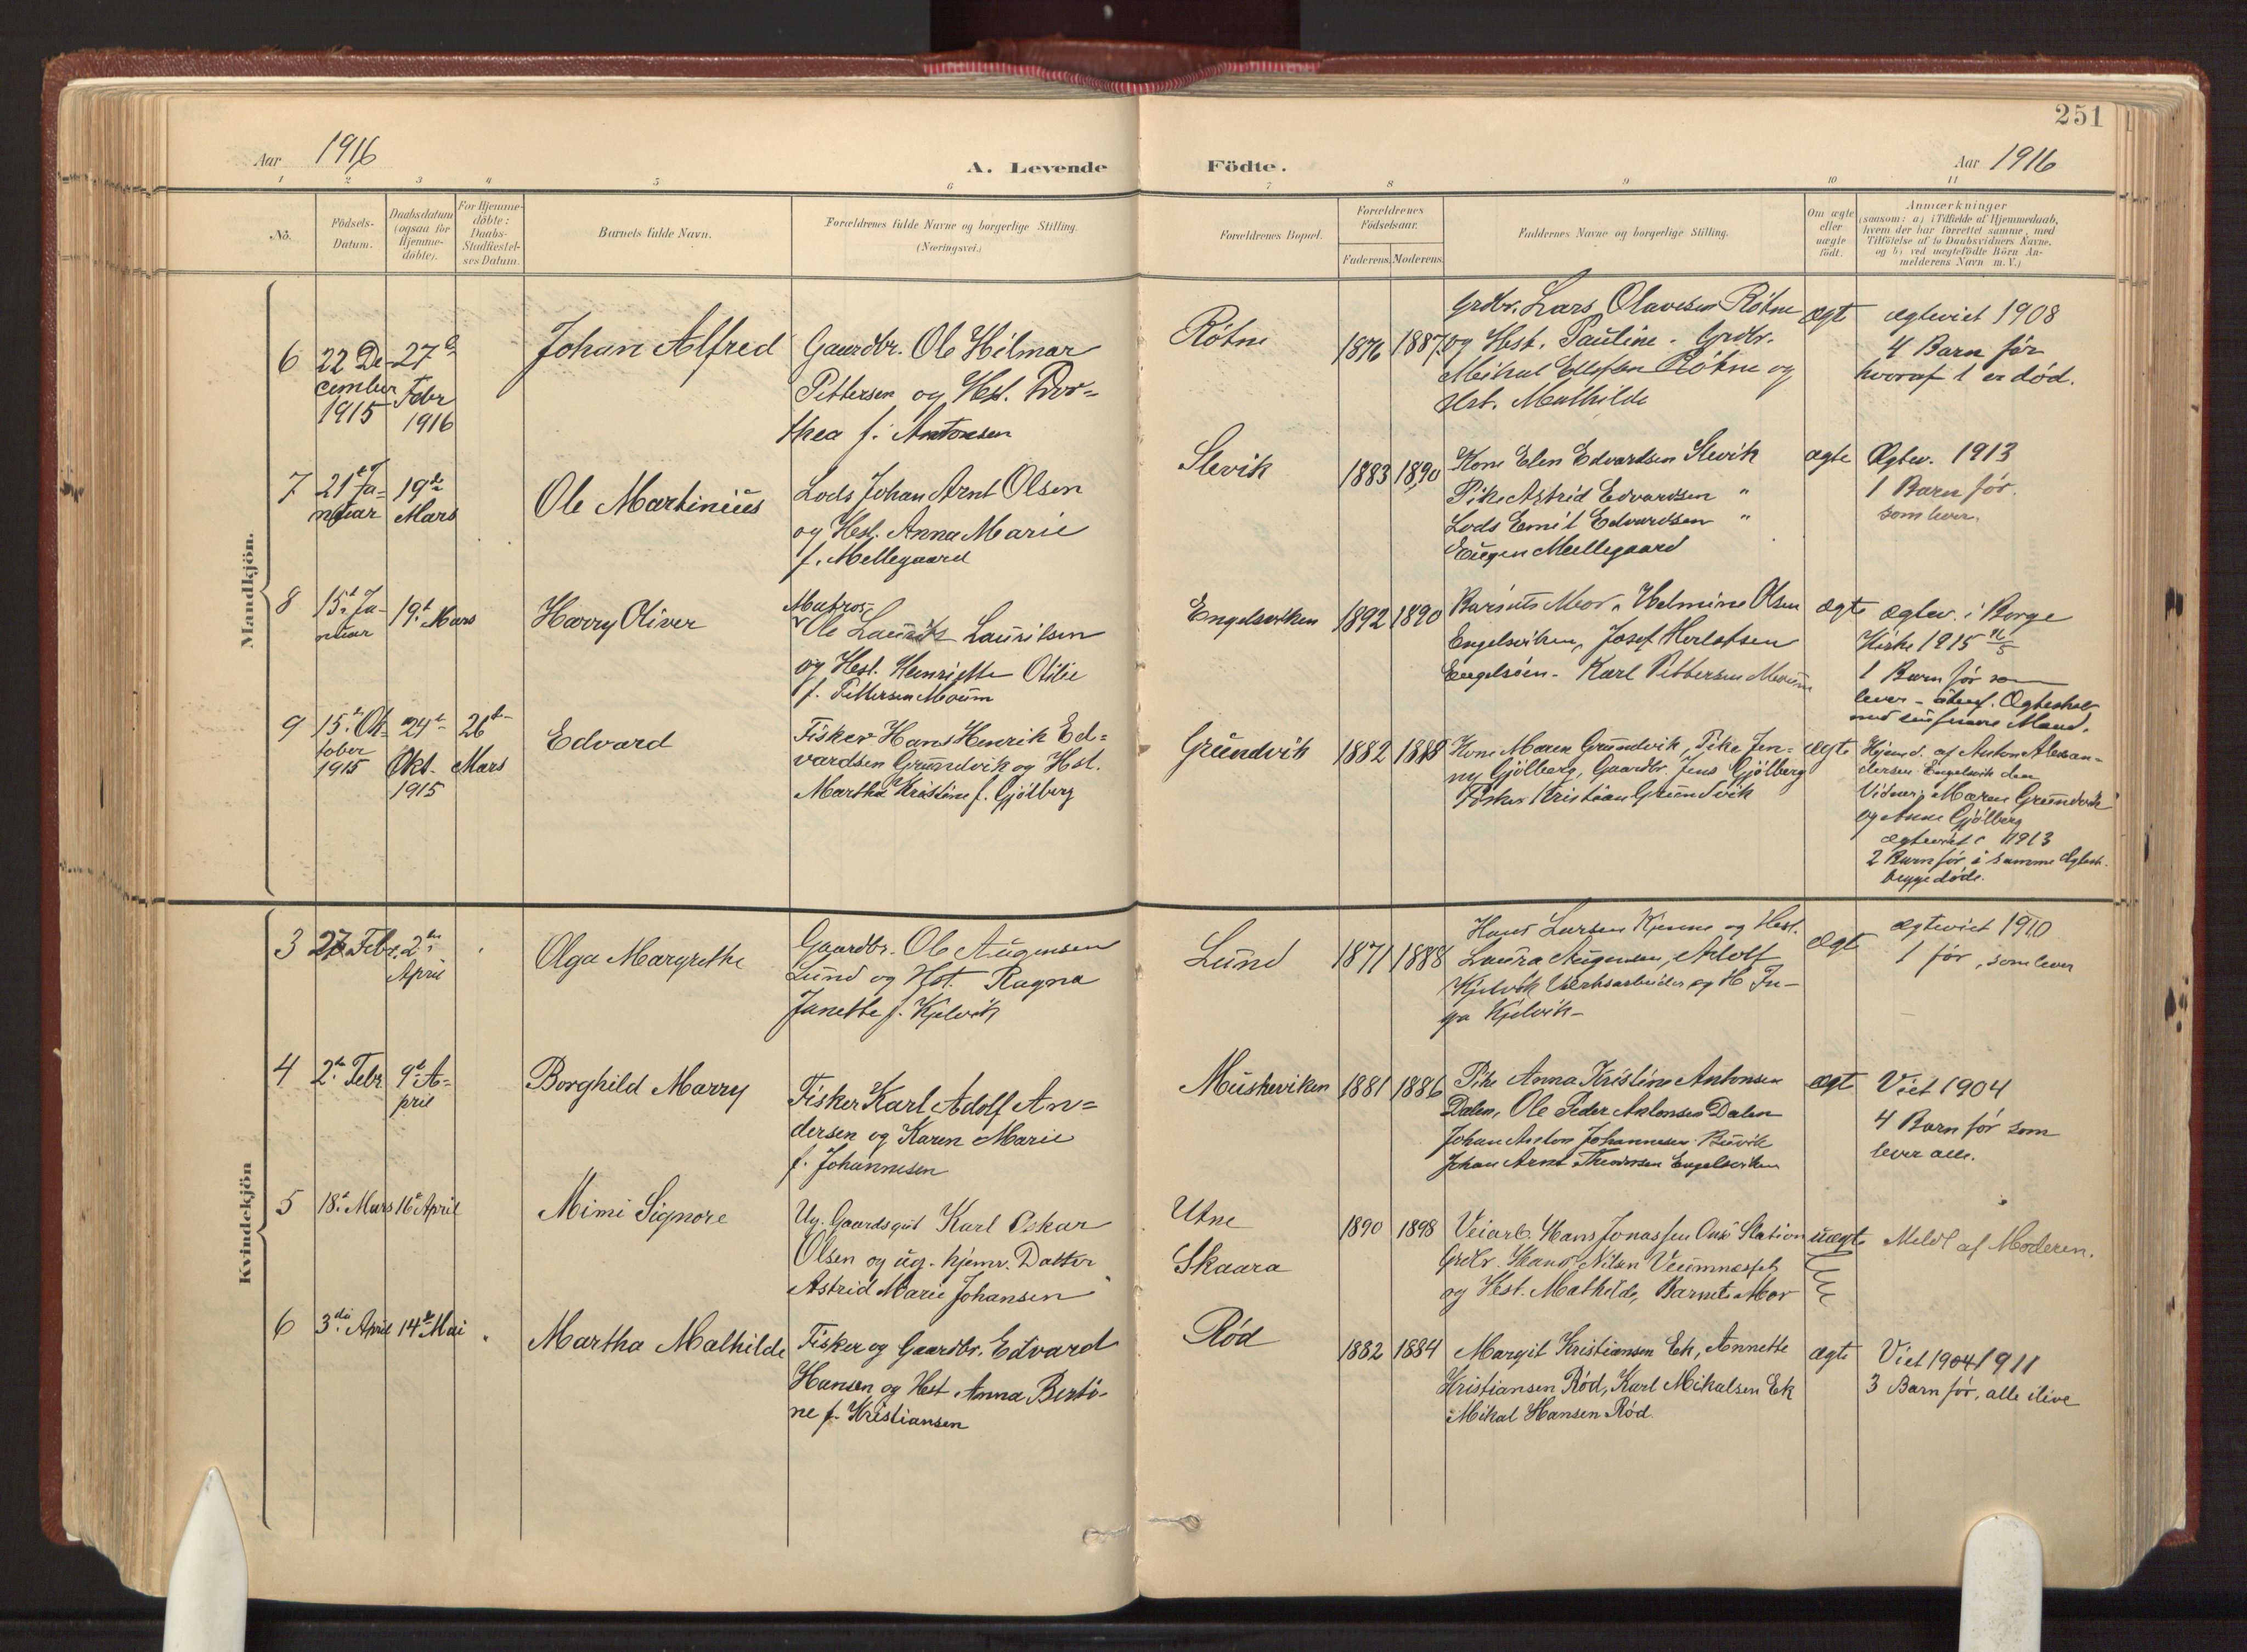 251
Aar 1916
A. Levende
Födte.
Aar 1916
1 2 3 4 5 6 7 8 9 10 11
No.
Födsels-
Datum.
Daabsdatum
(ogsaa for
Hjemme-
døbte).
For Hjemme-
døbte:
Daabs-
Stadfæstel-
ses Datum.
Barnets fulde Navn.
Forældrenes fulde Navne og borgerlige Stilling.
(Næringsvei.)
Forældrenes Bopæl.
Forældrenes
Födselsaar.
Faderens. Moderens.
Faddernes Navne og borgerlige Stilling.
Om ægte
eller
uægte
født.
Anmærkninger
(saasom: a) i Tilfælde af Hjemmedaab,
hvem der har forrettet samme, med
Tilføielse af to Daabsvidners Navne,
og b) ved uægtefødte Börn An-
melderens Navn m. V.)
Mandkjön.
6
22 De-
cember
1915
27
Febr
1916
Johan Alfred
Gaardbr. Ole Hilmar
Pettersen og Hst. Dor=
thea f. Antonsen
Röhne
1876 1887
Grdbr. Lars Olavesen Röhne
og Hst. Pauline. Grdbr.
Mikal Röhne og
Hst. Mathilde
ægt
ægteviet 1908
4 Barn för
hvoraf 1 er död.
7
21 Ja=
nuar
19de
Mars
Ole Martinius
Lods Johan Arnt Olsen
og Hst. Anna Marie
f. Mellegaard
Slevik
1883 1890
Kone Elen Edvardsen Slevik
Pike Astrid Edvardsen "
Lods Emil Edvardsen "
Eugen Mellegaard
ægte
Ægtev. 1913
1 Barn för.
som lever.
8
15. Ja-
nuar
19. Mars
Harry Oliver
Matros
Ole Lauritz Lauritsen
og Hst. Henriette Otilie
f. Pettersen Moum
Engelsviken
1892 1890
Barnets Mor, Helmine Olsen
Engelsviken, Josef
Engelsöen - Karl Pettersen Moum
ægte
ægtev. i Borge
Kirke 1915
1 Barn för som
lever
9
15. Ok-
tober
1915
24
Okt.
1915
26
Mars
Edvard
Fisker Hans Henrik Ed=
vardsen Grundvik og Hst.
Martha Kristine f. Gjölberg
Grundvik
1882
Kone Maren Grundvik, Pike Jen=
ny Gjölberg, Gaardbr. Jens Gjölberg
Fisker Kristian Grundvik
ægte
Hjemd. af Anton Alexan-
dersen Engelsvik den
Vidner: Maren Grundvik
og Anne Gjölberg
ægteviet 1913
2 Barn för i samme Ægtesk.
begge döde.
Kvindekjön
3
Febr.
2
April
Olga Margrethe
Gaardbr. Ole Augensen
Lund og Hst. Ragna
Janette f. Kjölvik
Lund
1871 1888
Hans Larsen Kjenne og Hst.
Laura Augensen, Adolf
Kjölvik Verksarbeider og H In-
ga Kjölvik-
ægt
ægteviet 1910
1 för, som lever
4
2. Febr
9 A=
pril
Borghild Marry
Fisker Karl Adolf An=
dersen og Karen Marie
f. Johannesen
Muskeviken
1881 1886
Pike Anna Kristine Antonsen
Dalen, Ole Peder Antonsen Dalen
Johan Anton Johannesen Buvik
Johan Arnt Engelsviken
ægt
Viet 1904
4 Barn för som
lever alle.
5
18. Mars
16 April
Mimi Signore
Ug. Gaardsgut Karl Oskar
Olsen og ug. hjemv. Datter
Astrid Marie Johansen
Utne
Skaara
1890 1898
Veiarb. Hans Jonassen Onsö Station
Grdbr. Hans Nilsen
og Hst. Mathilde, Barnets Mor
uægte
Meldt af Moderen.
6
3die April
14 Mai
"
Martha Mathilde
Fisker og Gaardbr. Edvard
Hansen og Hst Anna Berti-
ne f. Kristiansen
Röd
1882 1884
Margit Kristiansen Ek, Annette
Kristiansen Röd, Karl Mikalsen Ek
Mikal Hansen Röd.
ægte
Viet 1904 1911
3 Barn för, alle ilive